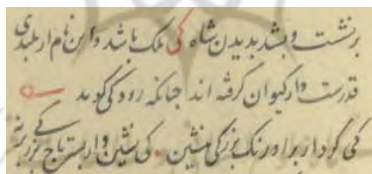 برنشست و بشد بدیدن شاه کی ملک باشد و این نام از بلندی
قدرست و از کیوان گرفته اند چنانکه رودکی گوید
کی کردار بر اورنک بزرگی بنشین کی نشین و از بستر تاج بزر